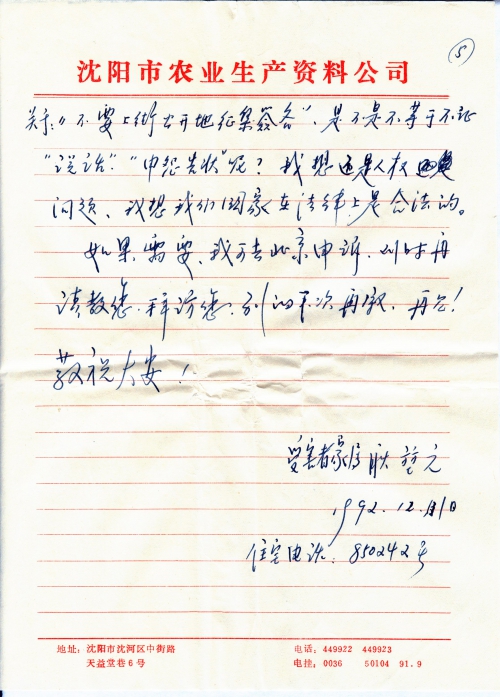 5
沈阳市农业生产资料公司
关于:"不要上街公开地征集签名",是不是不等于不让
"说话""申冤告状"呢?我想还是人权
问题、我想我们国家在法律上是合法的。
如果需要、我可去北京申诉.到时再
请教您.拜访您.别的下次再叙.再会!
敬祝大安!
受害者家属 耿
1992.12.月1日
住宅电话:850242号
地址:沈阳市沈河区中街路 电话:449922 449923
天益堂巷6号 电挂:0036 50104 91.9